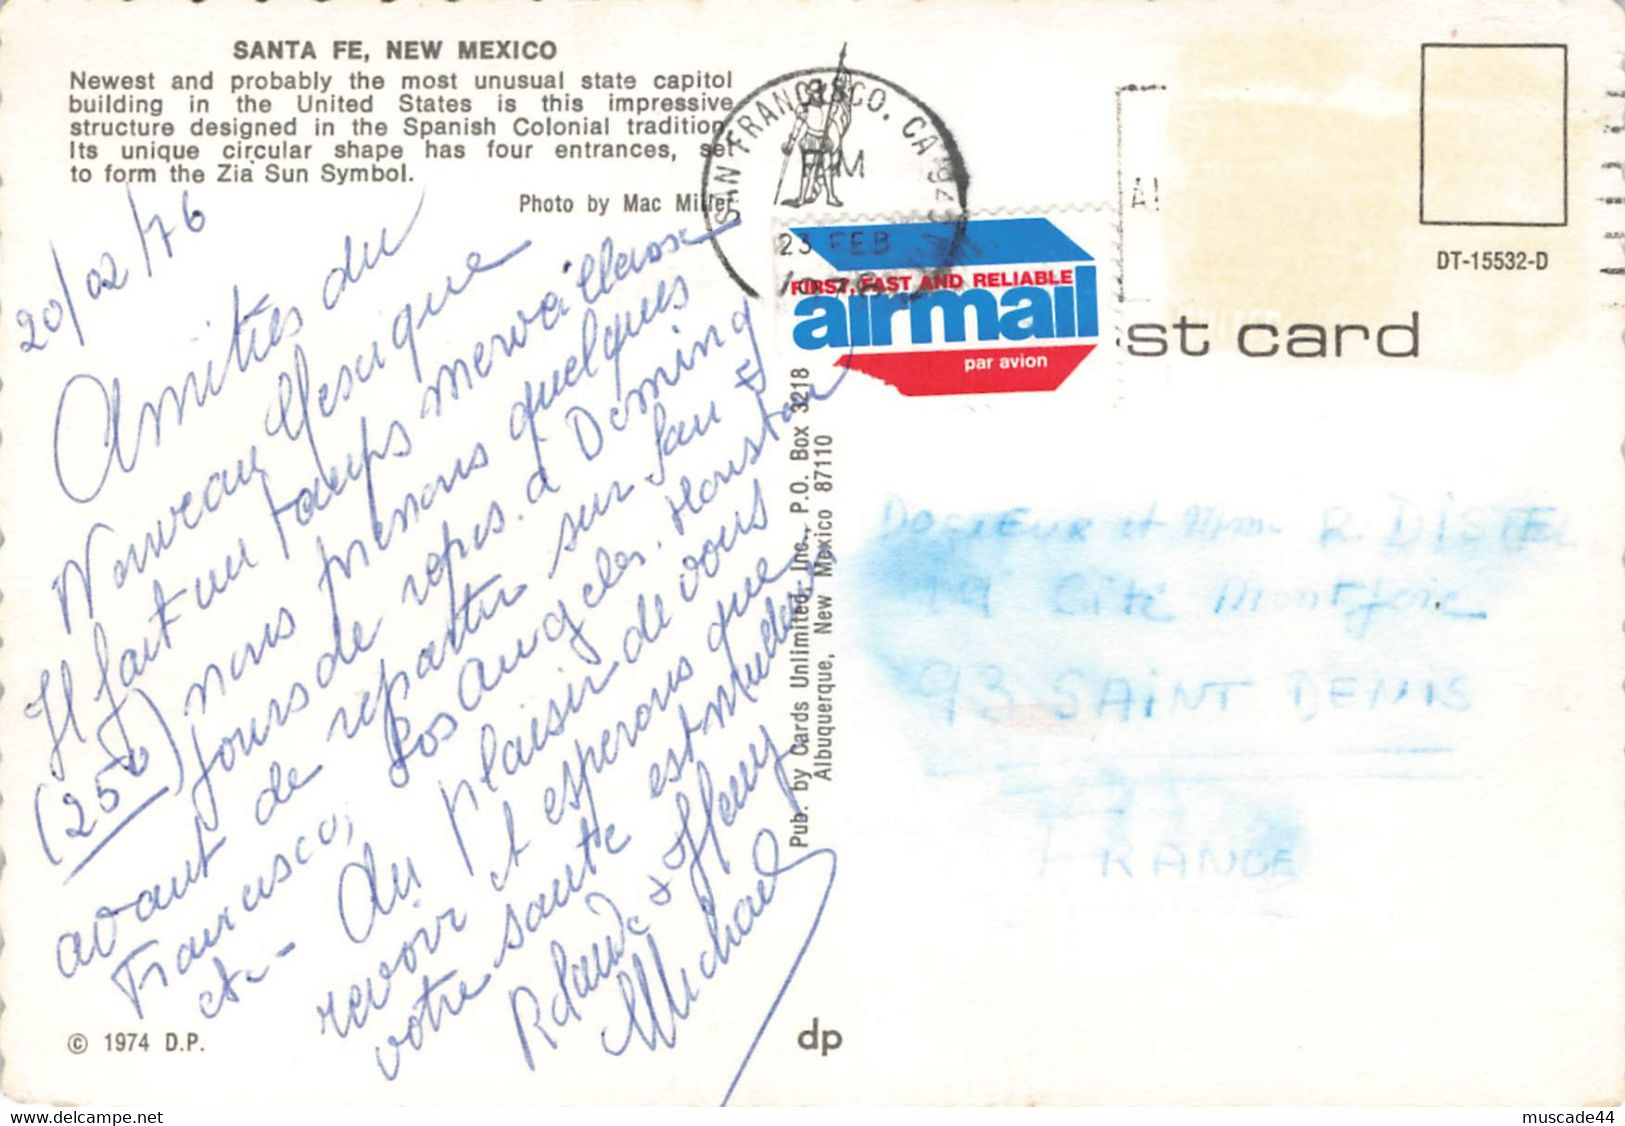 SANTA FE, NEW MEXICO
Newest and probably the most unusual state capitol
building in the United States is this impressive
structure designed in the Spanish Colonial tradition.
Its unique circular shape has four entrances, set
to form the Zia Sun Symbol.
Photo by Mac Miller
20/02/76
Amitiés du
Nouveau Mexique
Il fait un temps merveilleux
(25°) nous prenons quelques
jours de repos. à Deming
avant de repartir sur San
Francisco, Los Angeles, Houston
etc - Au plaisir de vous
revoir et espérons que
votre santé est meilleure
Rolande & Henry
Michael
© 1974 D.P.
Pub. by Cards Unlimited, Inc., P.O. Box 3218
Albuquerque, New Mexico 87110
dp
SAN FRANCISCO. CA
PM
23 FEB
FIRST, FAST AND RELIABLE
airmail
par avion
st card
DT-15532-D
Docteur et Mme R. DISTEL
19 Cité Montjoie
93 SAINT DENIS
FRANCE
www.delcampe.net
muscade44